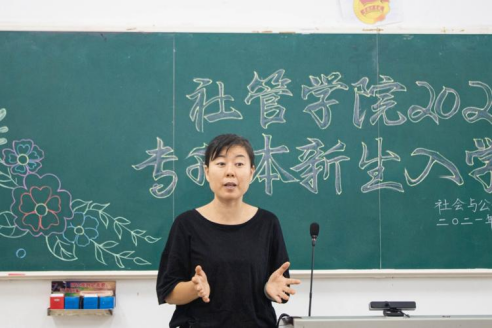 社管学院202
专升本新生入学
社会与公
二〇二一年